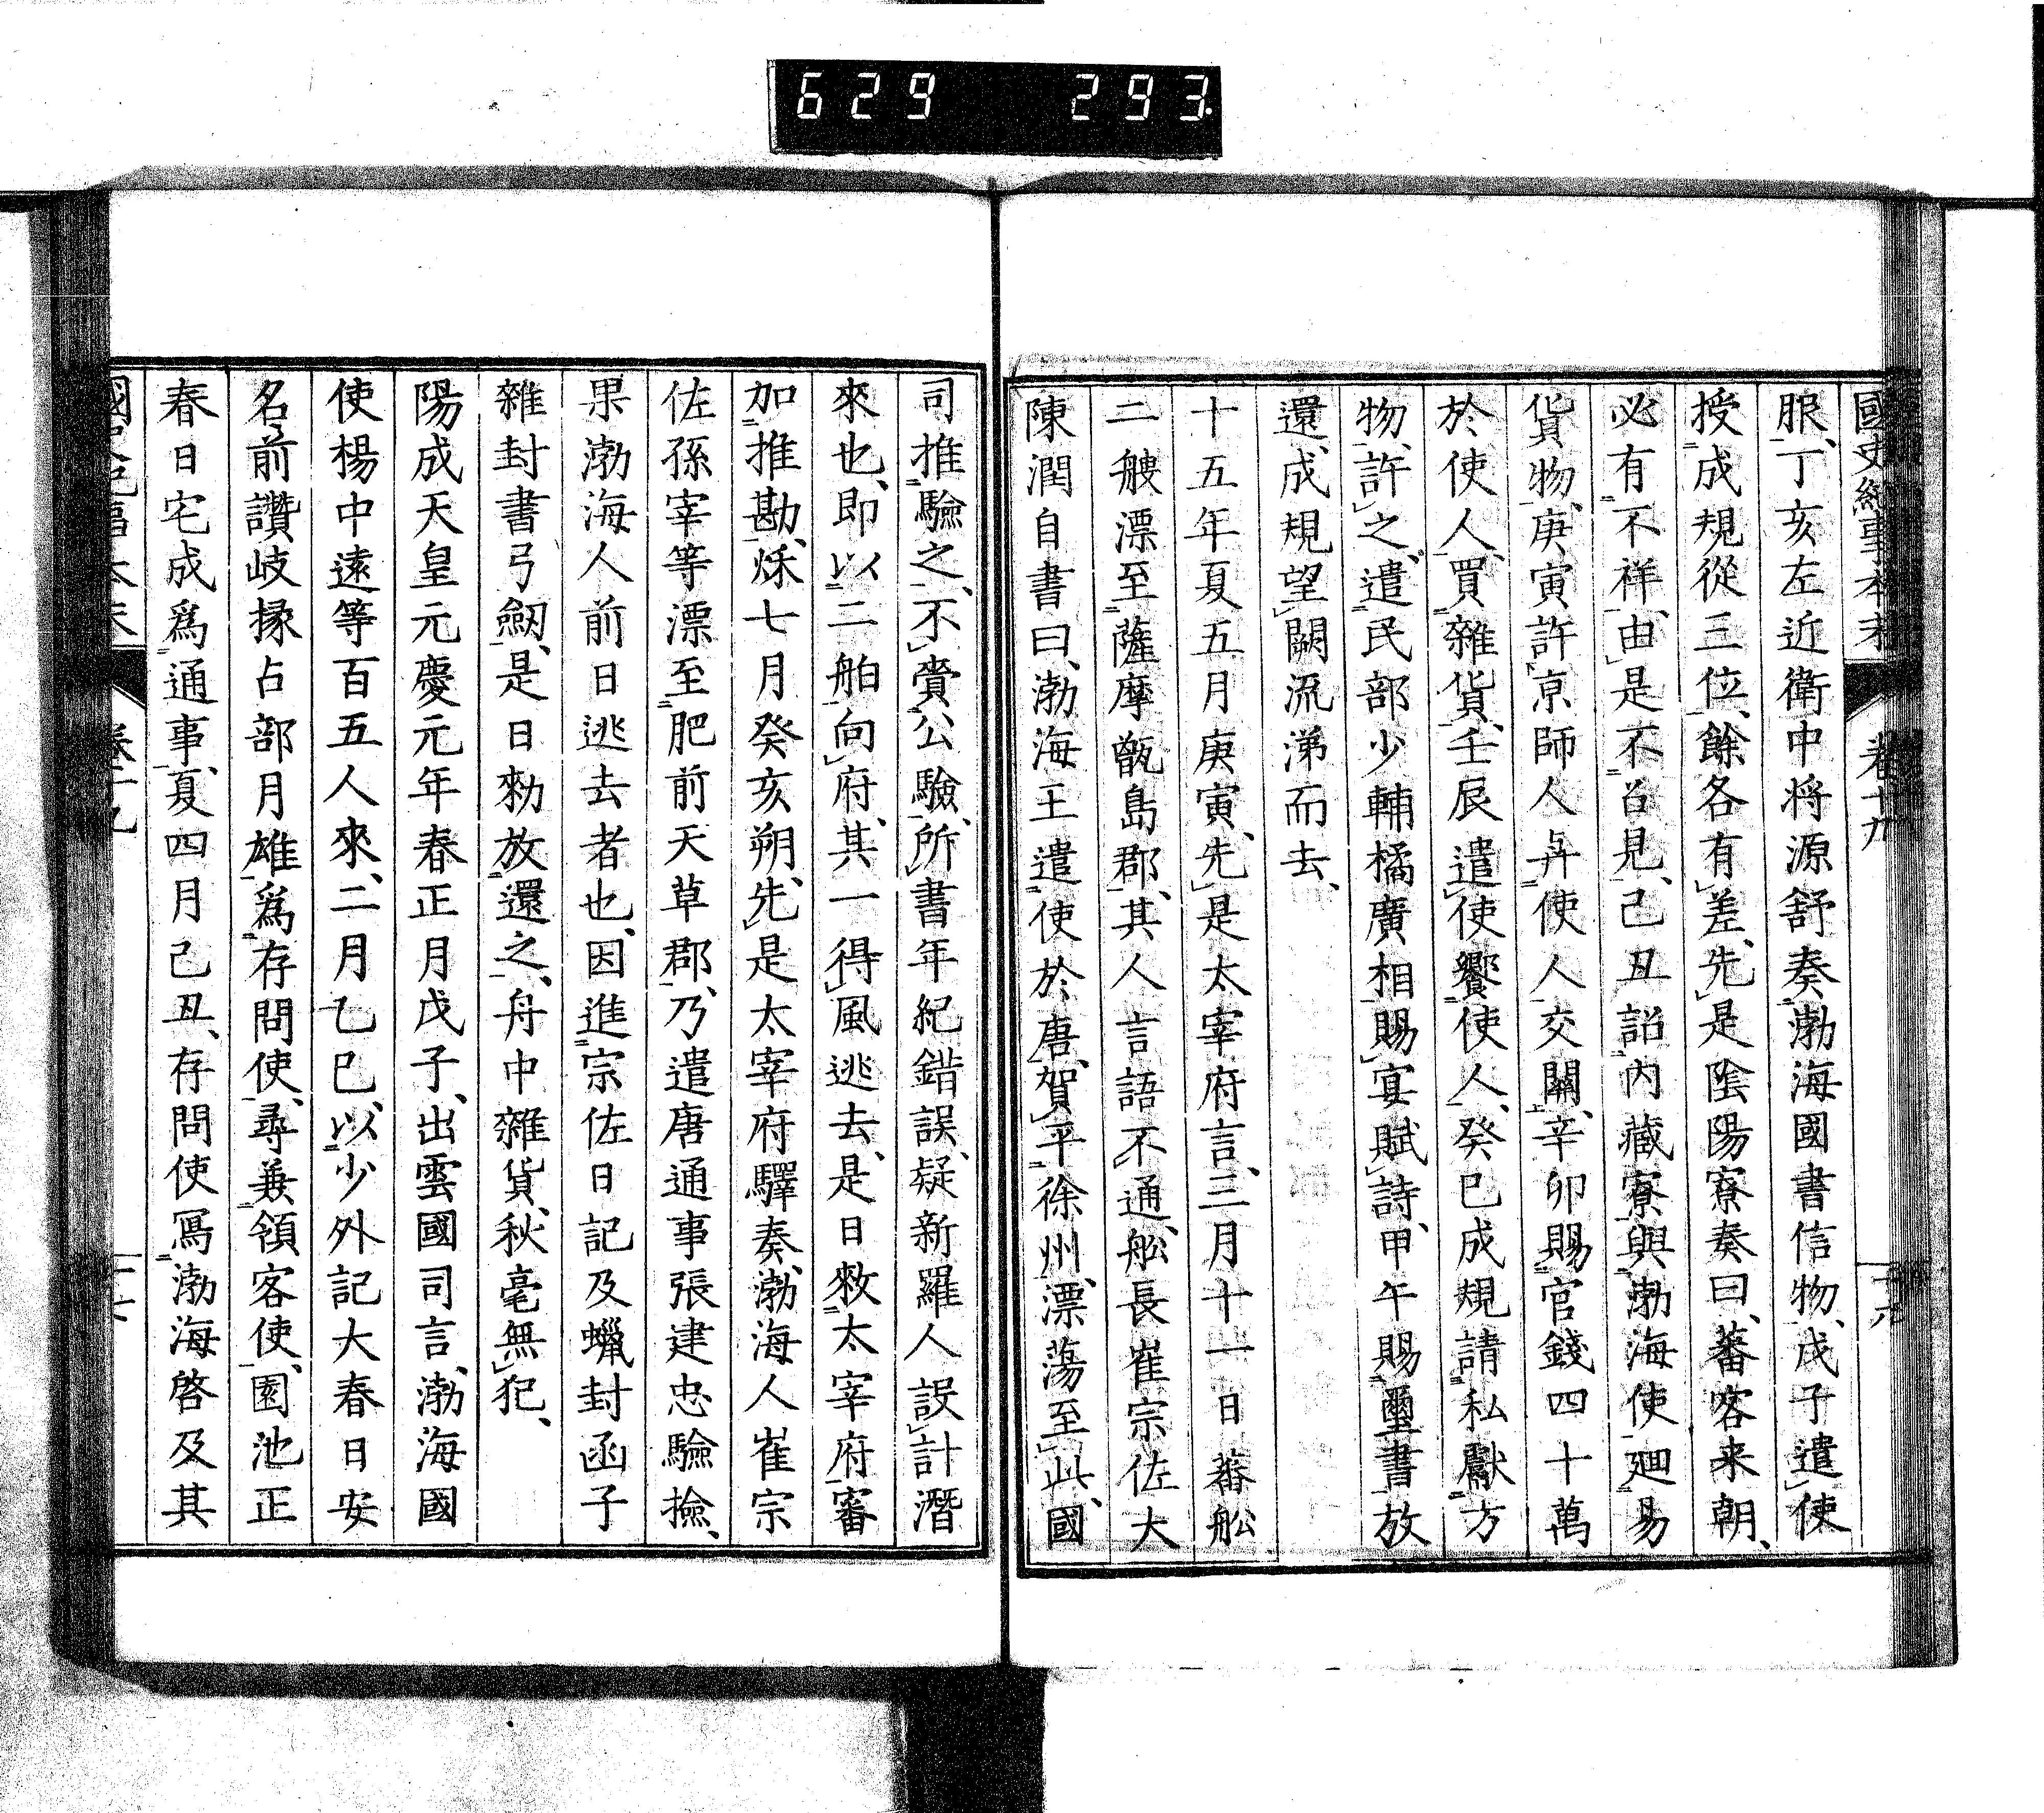 629 293.
國史紀事本末 卷十九
服、丁亥左近衛中将源舒奏渤海國書信物、戊子遣使
授成規從三位、餘各有差、先是陰陽寮奏曰、蕃客来朝、
必有不祥、由是不召見、己丑詔内藏寮與渤海使廻易
貨物、庚寅許京師人與使人交關、辛卯賜官錢四十萬
於使人、買雜貨、壬辰遣使饗使人、癸巳成規請私獻方
物、許之、遣民部少輔橘廣相賜宴賦詩、甲午賜璽書放
還、成規望闕流涕而去、
十五年夏五月庚寅、先是太宰府言、三月十一日蕃舩
二艘漂至薩摩甑島郡、其人言語不通、舩長崔宗佐大
陳潤自書曰、渤海王遣使於唐、賀平徐州、漂蕩至此、國
司推驗之、不賷公驗、所書年紀錯誤、疑新羅人設計潛
來也、即以二舶向府、其一得風逃去、是日敕太宰府審
加推勘、秌七月癸亥朔、先是太宰府驛奏、渤海人崔宗
佐孫宰等漂至肥前天草郡、乃遣唐通事張建忠驗撿、
果渤海人前日逃去者也、因進宗佐日記及蠟封函子
雜封書弓劒、是日勑放還之、舟中雜貨、秋毫無犯、
陽成天皇元慶元年春正月戊子、出雲國司言、渤海國
使楊中遠等百五人來、二月乙巳、以少外記大春日安
名前讚岐掾占部月雄爲存問使、尋兼領客使、園池正
春日宅成爲通事、夏四月己丑、存問使寫渤海啓及其